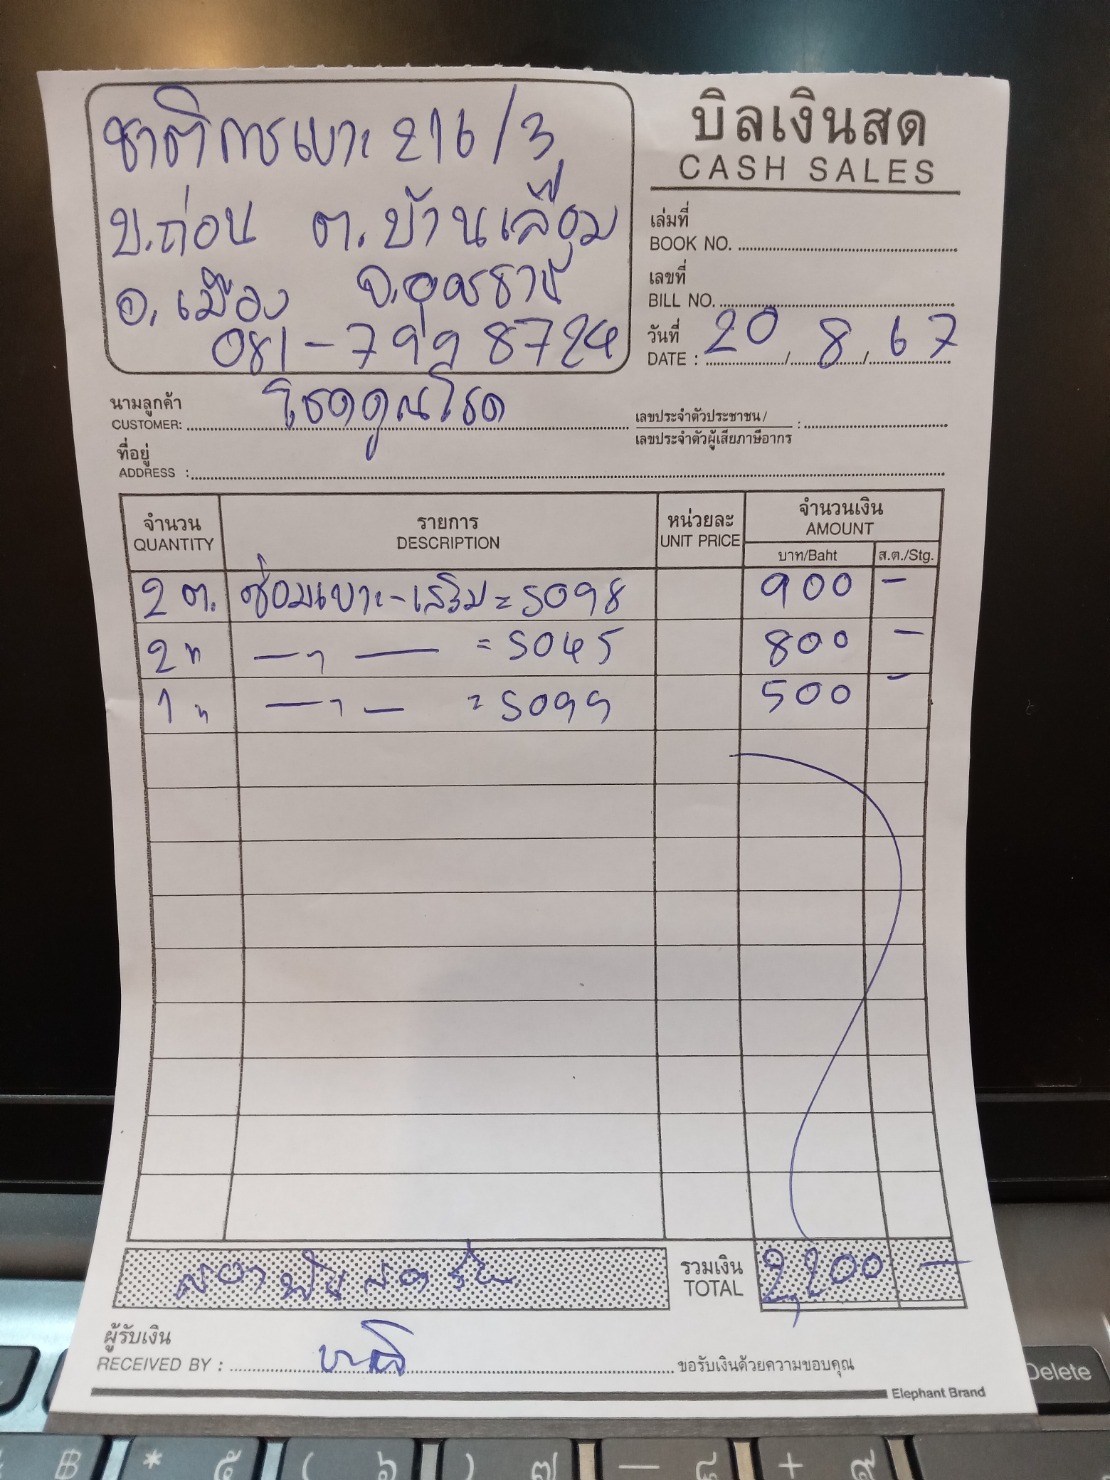 ชาติการเบาะ 216/3
บ.ถ่อน ต.บ้านเลื่อม
อ.เมือง จ.อุดรธานี
081-799 8724
บิลเงินสด
CASH SALES
เล่มที่
BOOK NO.
เลขที่
BILL NO.
วันที่
DATE : 20 / 8 / 67
นามลูกค้า
CUSTOMER: โชคคูณโชค
เลขประจำตัวประชาชน /
เลขประจำตัวผู้เสียภาษีอากร :
ที่อยู่
ADDRESS :
จำนวน รายการ หน่วยละ จำนวนเงิน
QUANTITY DESCRIPTION UNIT PRICE AMOUNT
บาท/Baht ส.ต./Stg.
2 ต. ซ่อมเบาะ-เสริม = 5098 900 -
2 " —"— = 5045 800 -
1 " —"— = 5099 500 -
สองพันสองร้อย
รวมเงิน
TOTAL 2,200 -
ผู้รับเงิน
RECEIVED BY : ขอรับเงินด้วยความขอบคุณ
Elephant Brand
Delete
฿ * ๕ ( ๖ ) ๗ — ๘ + ๙